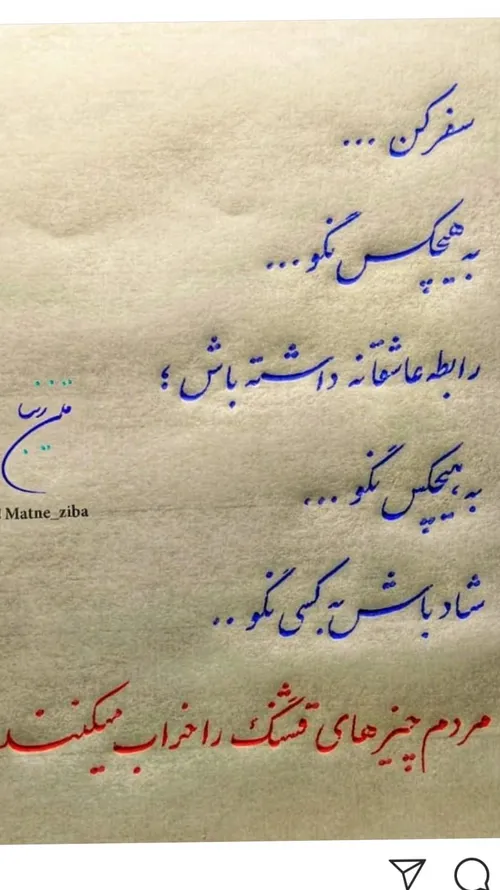 سفر کن ...
به هیچکس نگو ...
رابطه عاشقانه داشته باش ؛
به هیچکس نگو ...
شاد باش به کسی نگو ..
مردم چیزهای قشنگ را خراب میکنند
متن زیبا
Matne_ziba